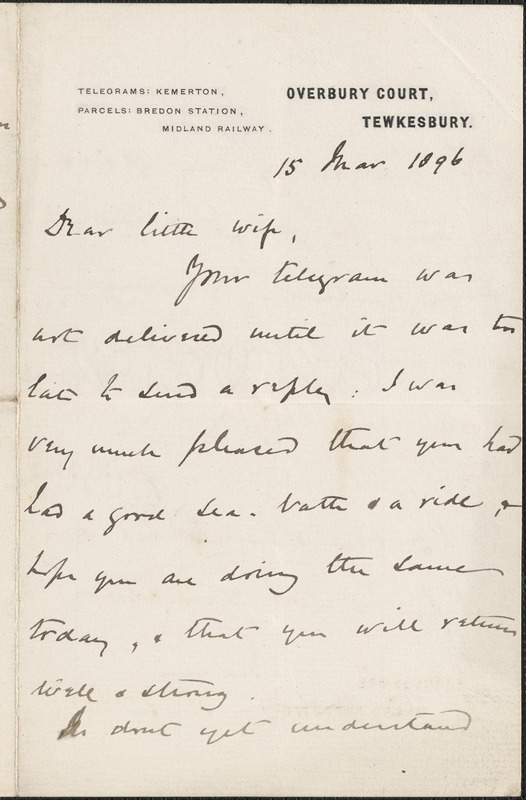 TELEGRAMS: KEMERTON,
PARCELS: BREDON STATION,
MIDLAND RAILWAY.
OVERBURY COURT,
TEWKESBURY.
15 Mar 1896
Dear little wife,
Your telegram was
not delivered until it was too
late to send a reply: I was
very much pleased that you had
had a good sea-bath & a ride, &
hope you are doing the same
today, & that you will return
well & strong.
dont yet understand